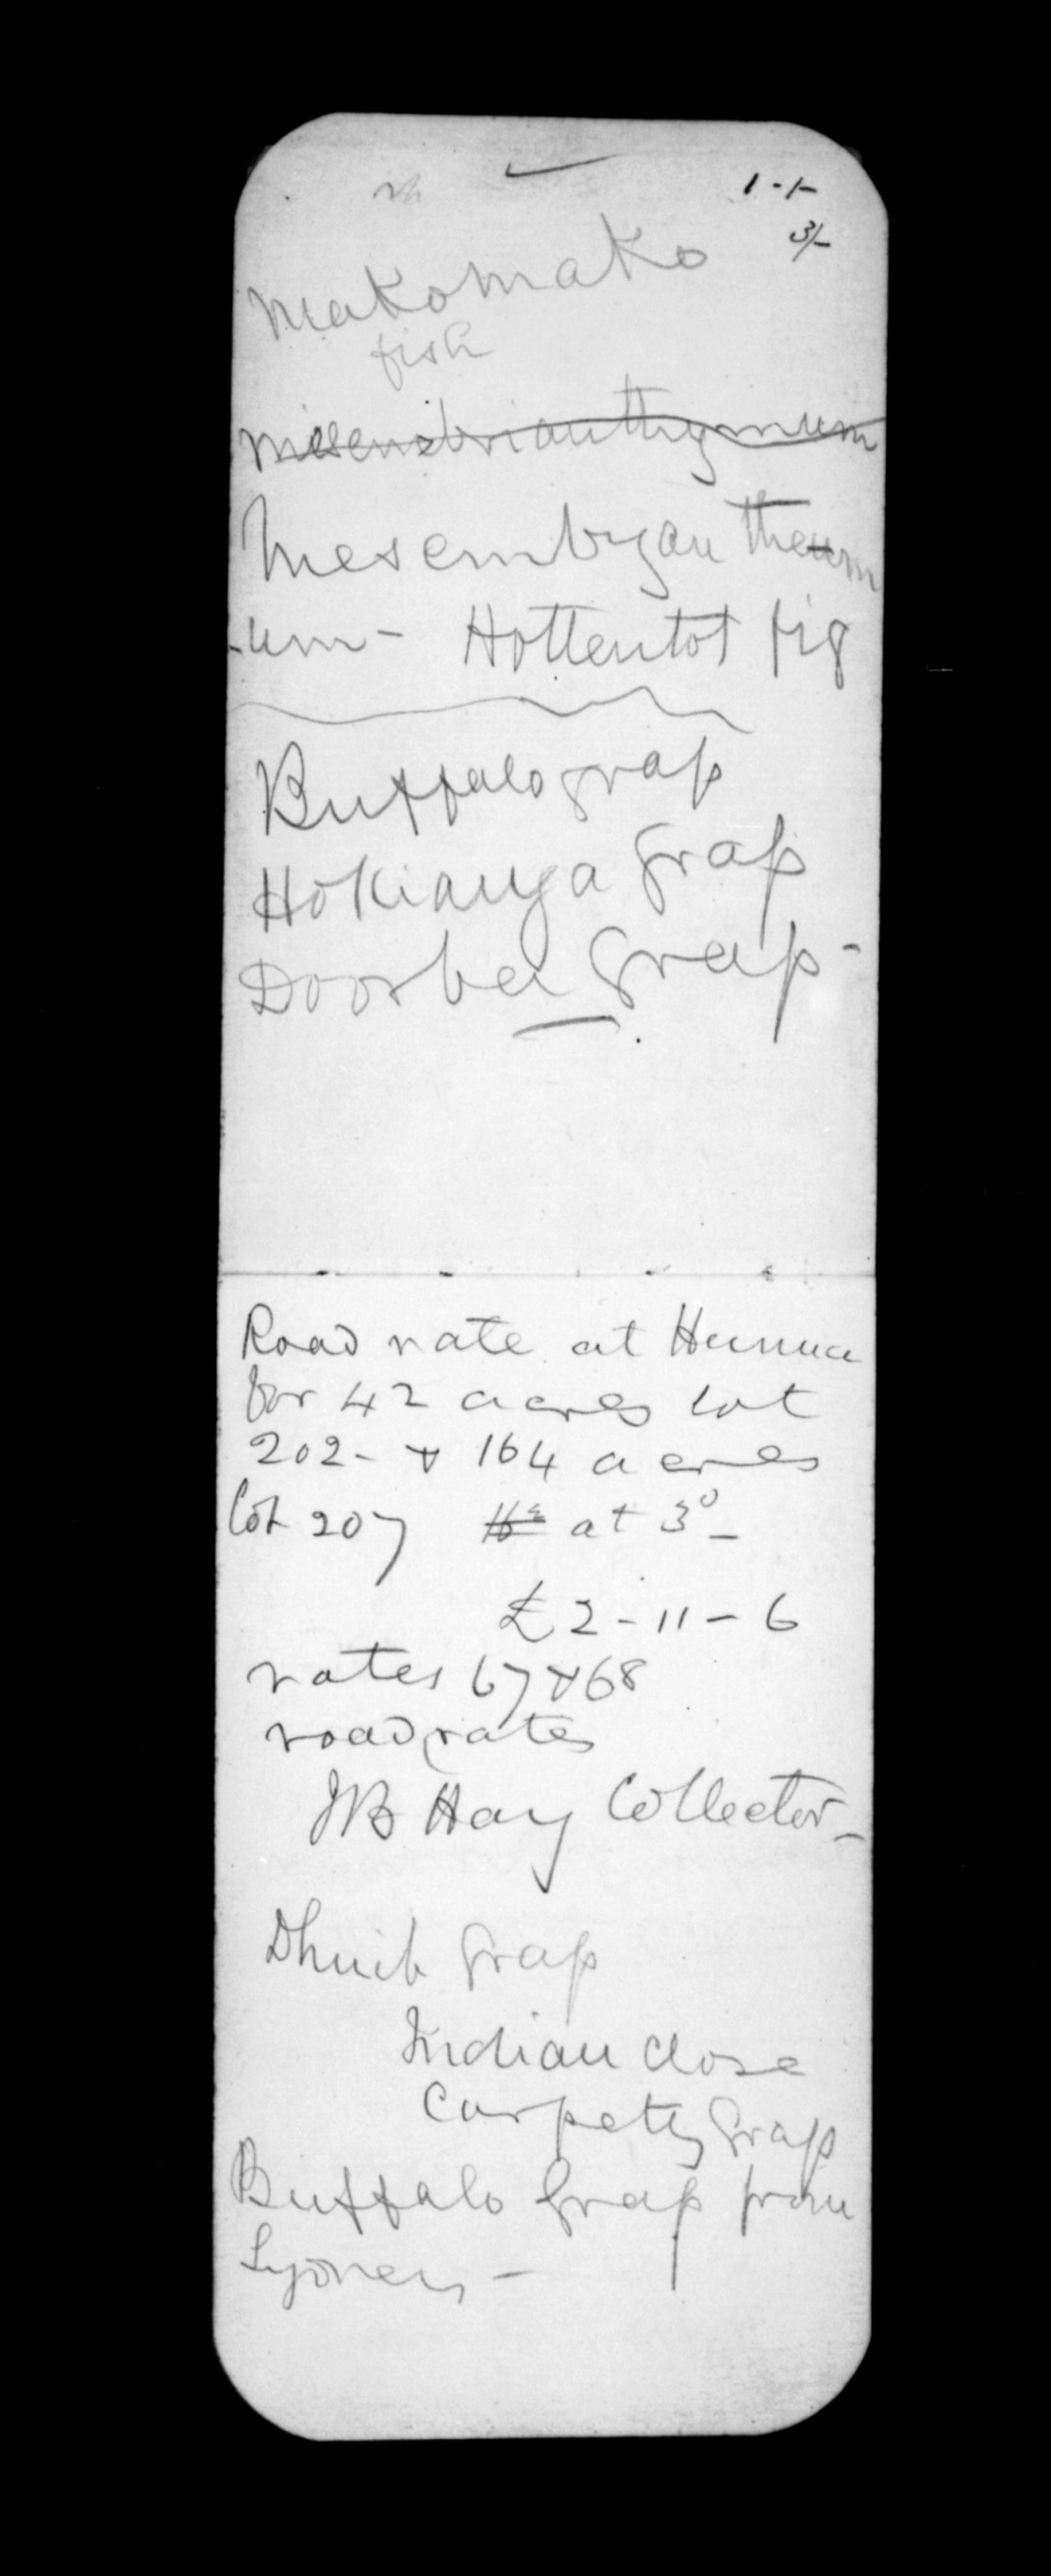 1-1-
3/-
Makomako
fish
mesembrianthymum
Mesembryanthem
-um - Hottentot fig
Buffalo grass
Hokianga grass
Doorba grass -
Road rate at Hunua
for 42 acres lot
202 - & 164 acres
Lot 207 at 3d -
£2-11-6
rates 67 & 68
road rates
JB Hay Collector -
Dhuib grass
Indian close
carpety grass
Buffalo grass from
Sydney -